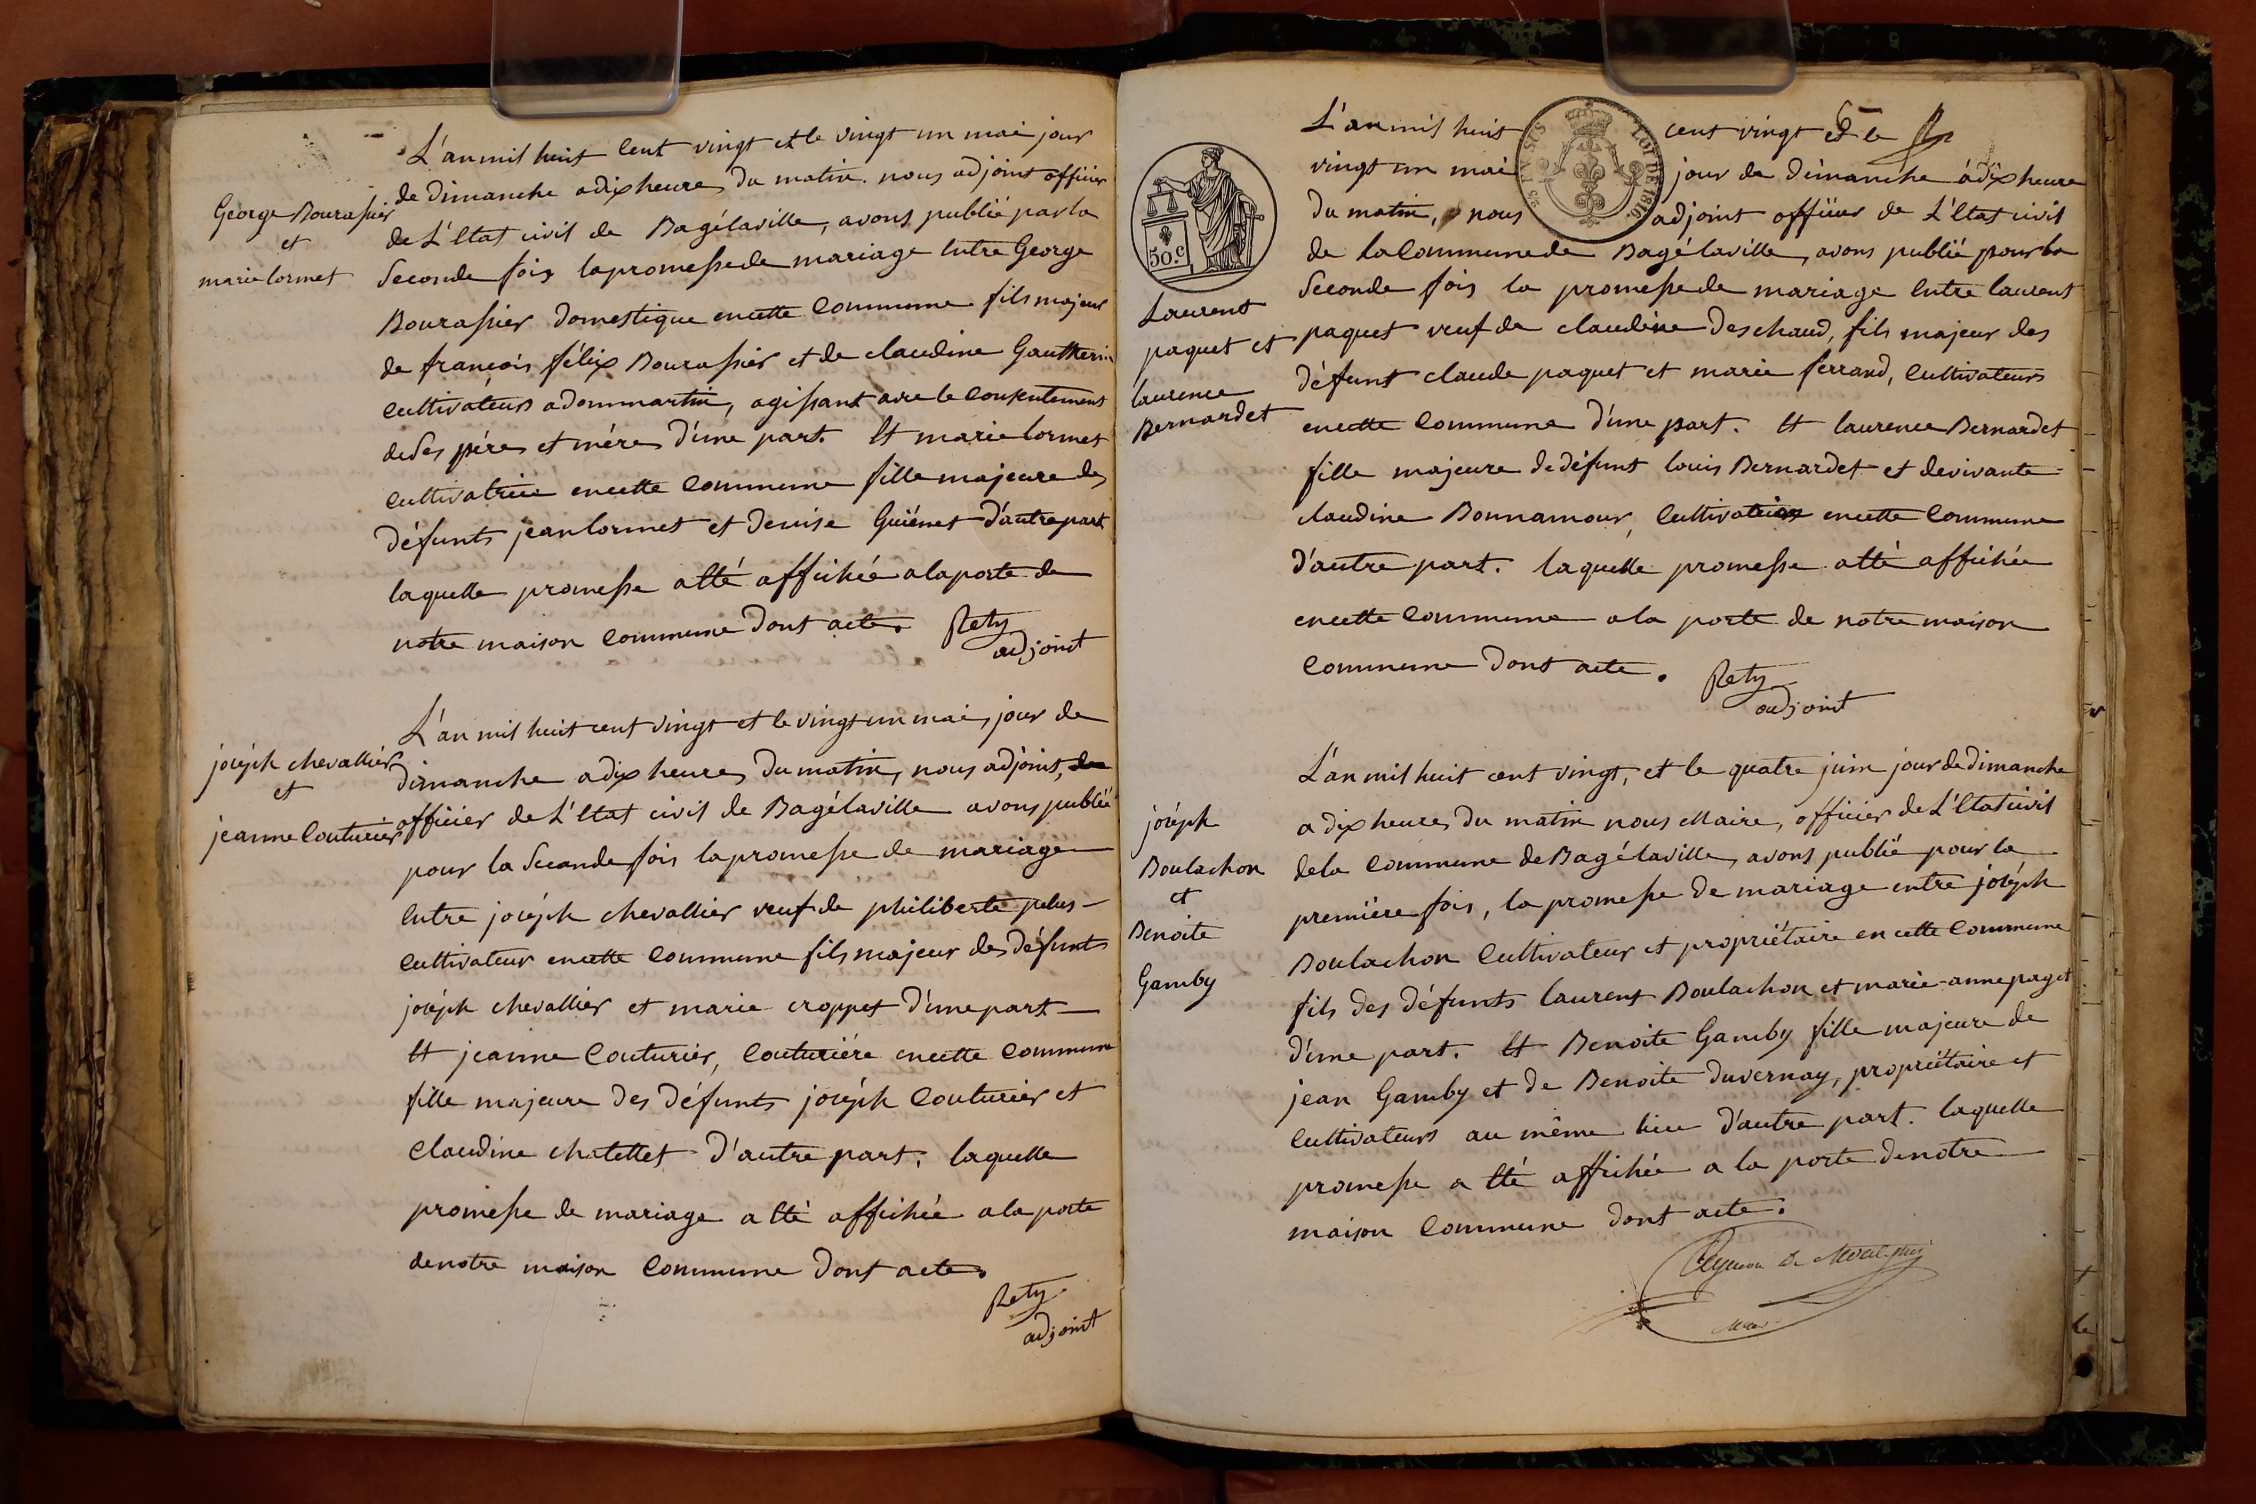 George Bourassier
et
marie lormet
L'an mil huit cent vingt et le vingt un mai jour
de dimanche a dix heures du matin. nous adjoint officier
de L'Etat civil de Bagélaville, avons publié par la
Seconde fois la promesse de mariage Entre George
Bourassier domestique en cette Commune fils majeur
de françois félix Bourassier et de claudine Gautherin
Cultivateurs a dommartin, agissant avec le Consentement
de Ses père et mère d'une part. Et marie lormet
Cultivatrice en cette Commune fille majeure des
défunts jean lormet et denise Guiénet d'autre part
laquelle promesse a Eté affichée a la porte de
notre maison Commune dont acte. Rety
adjoint
joséph chevallier
et
jeanne Couturier
L'an mil huit cent vingt et le vingt un mai, jour de
dimanche a dix heures du matin, nous adjoint,
officier de L'Etat civil de Bagélaville avons publié
pour la Seconde fois la promesse de mariage
Entre joséph chevallier veuf de philiberte pelus
Cultivateur en cette Commune fils majeur des défunts
joséph chevallier et marie croppet d'une part
Et jeanne Couturier, Couturière en cette Commune
fille majeure des défunts joséph Couturier et
Claudine chatellet d'autre part, laquelle
promesse de mariage a Eté affichée a la porte
de notre maison Commune dont acte.
Rety
adjoint
50.c
LOI DE 1816.
Laurent
paquet et
laurence
Bernardet
L'an mil huit cent vingt et le
vingt un mai jour de dimanche à dix heure
du matin, nous adjoint officier de L'Etat civil
de La Commune de Bagélaville, avons publié pour la
Seconde fois la promesse de mariage Entre laurent
paquet veuf de claudine deschaud, fils majeur des
défunt claude paquet et marie ferrand, Cultivateurs
en cette Commune d'une part. Et laurence Bernardet
fille majeure de défunt louis Bernardet et de vivante
claudine Bonnamour, en cette Commune
d'autre part. laquelle promesse a Eté affichée
en cette Commune a la porte de notre maison
Commune dont acte. Rety
adjoint
joséph
Boulachon
et
Benoite
Gamby
L'an mil huit cent vingt, et le quatre juin jour de dimanche
a dix heures du matin nous Maire, officier de L'Etat civil
de la Commune de Bagélaville, avons publié pour la
première fois, la promesse de mariage entre joséph
Boulachon Cultivateur et propriétaire en cette Commune
fils des défunts laurent Boulachon et marie-anne paget
d'une part. Et Benoite Gamby fille majeure de
jean Gamby et de Benoite duvernay, propriétaire et
Cultivateurs au même lieu d'autre part. laquelle
promesse a Eté affichée a la porte de notre
maison Commune dont acte.